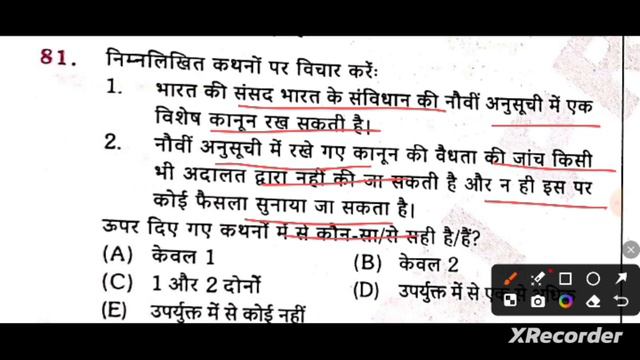 81. निम्नलिखित कथनों पर विचार करेंः
1. भारत की संसद भारत के संविधान की नौवीं अनुसूची में एक
विशेष कानून रख सकती है।
2. नौवीं अनुसूची में रखे गए कानून की वैधता की जांच किसी
भी अदालत द्वारा नहीं की जा सकती है और न ही इस पर
कोई फैसला सुनाया जा सकता है।
ऊपर दिए गए कथनों में से कौन-सा/से सही है/हैं?
(A) केवल 1 (B) केवल 2
(C) 1 और 2 दोनों (D) उपर्युक्त में से एक से अधिक
(E) उपर्युक्त में से कोई नहीं
XRecorder